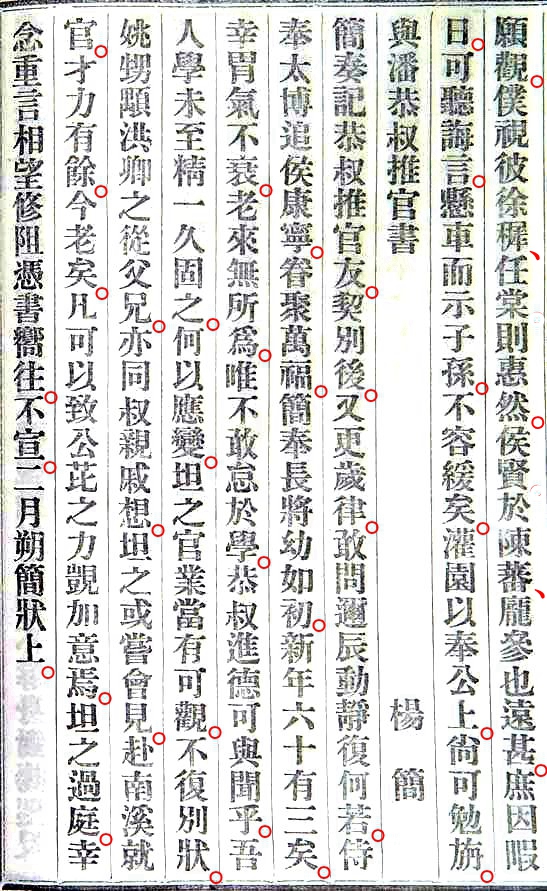 願觀。僕視彼徐穉、任棠則恧然。侯賢於陳蕃、龐參也遠甚。庶因暇
日。可聽誨言。懸車而示子孫。不容緩矣。灌園以奉公上。尙可勉旃。
與潘恭叔推官書　楊簡
簡奏記恭叔推官友契。別後。又更歲律。敢問邇辰動靜復何若。侍
奉太博追侯康寧。眷聚萬福。簡奉長將幼如初。新年六十有三矣。
幸胃氣不衰。老來無所爲。唯不敢怠於學。恭叔進德可與聞乎。吾
人學未至精一久固之。何以應變。坦之官業當有可觀。不復別狀。
姚甥頤洪卿之從父兄。亦同叔親戚想。坦之或嘗會見。赴南溪就
官。才力有餘。今老矣。凡可以致公芘之力覬加意焉。坦之過庭。幸
念重言相望修阻憑書嚮往。不宣。二月朔簡狀上。